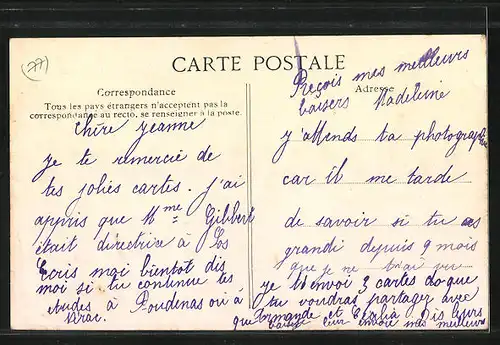 (77)
CARTE POSTALE
Correspondance
Tous les pays étrangers n'acceptent pas la
correspondance au recto, se renseigner à la poste.
Chère Jeanne
je te remercie de
tes jolies cartes. J'ai
appris que Mme Gibbert
était directrice à Los
Ecris moi bientot dis
moi si tu continue tes
études à Poudenas ou à
Adresse
Reçois mes meilleurs
baisers Madeleine
j'attends ta photographie
car il me tarde
de savoir si tu as
grandi depuis 9 mois
que je ne t'ai vu
je t'envoi 3 cartes do que
tu voudras partager avec
Armande et Dis leurs
que leur envoie mes meilleurs
baisers